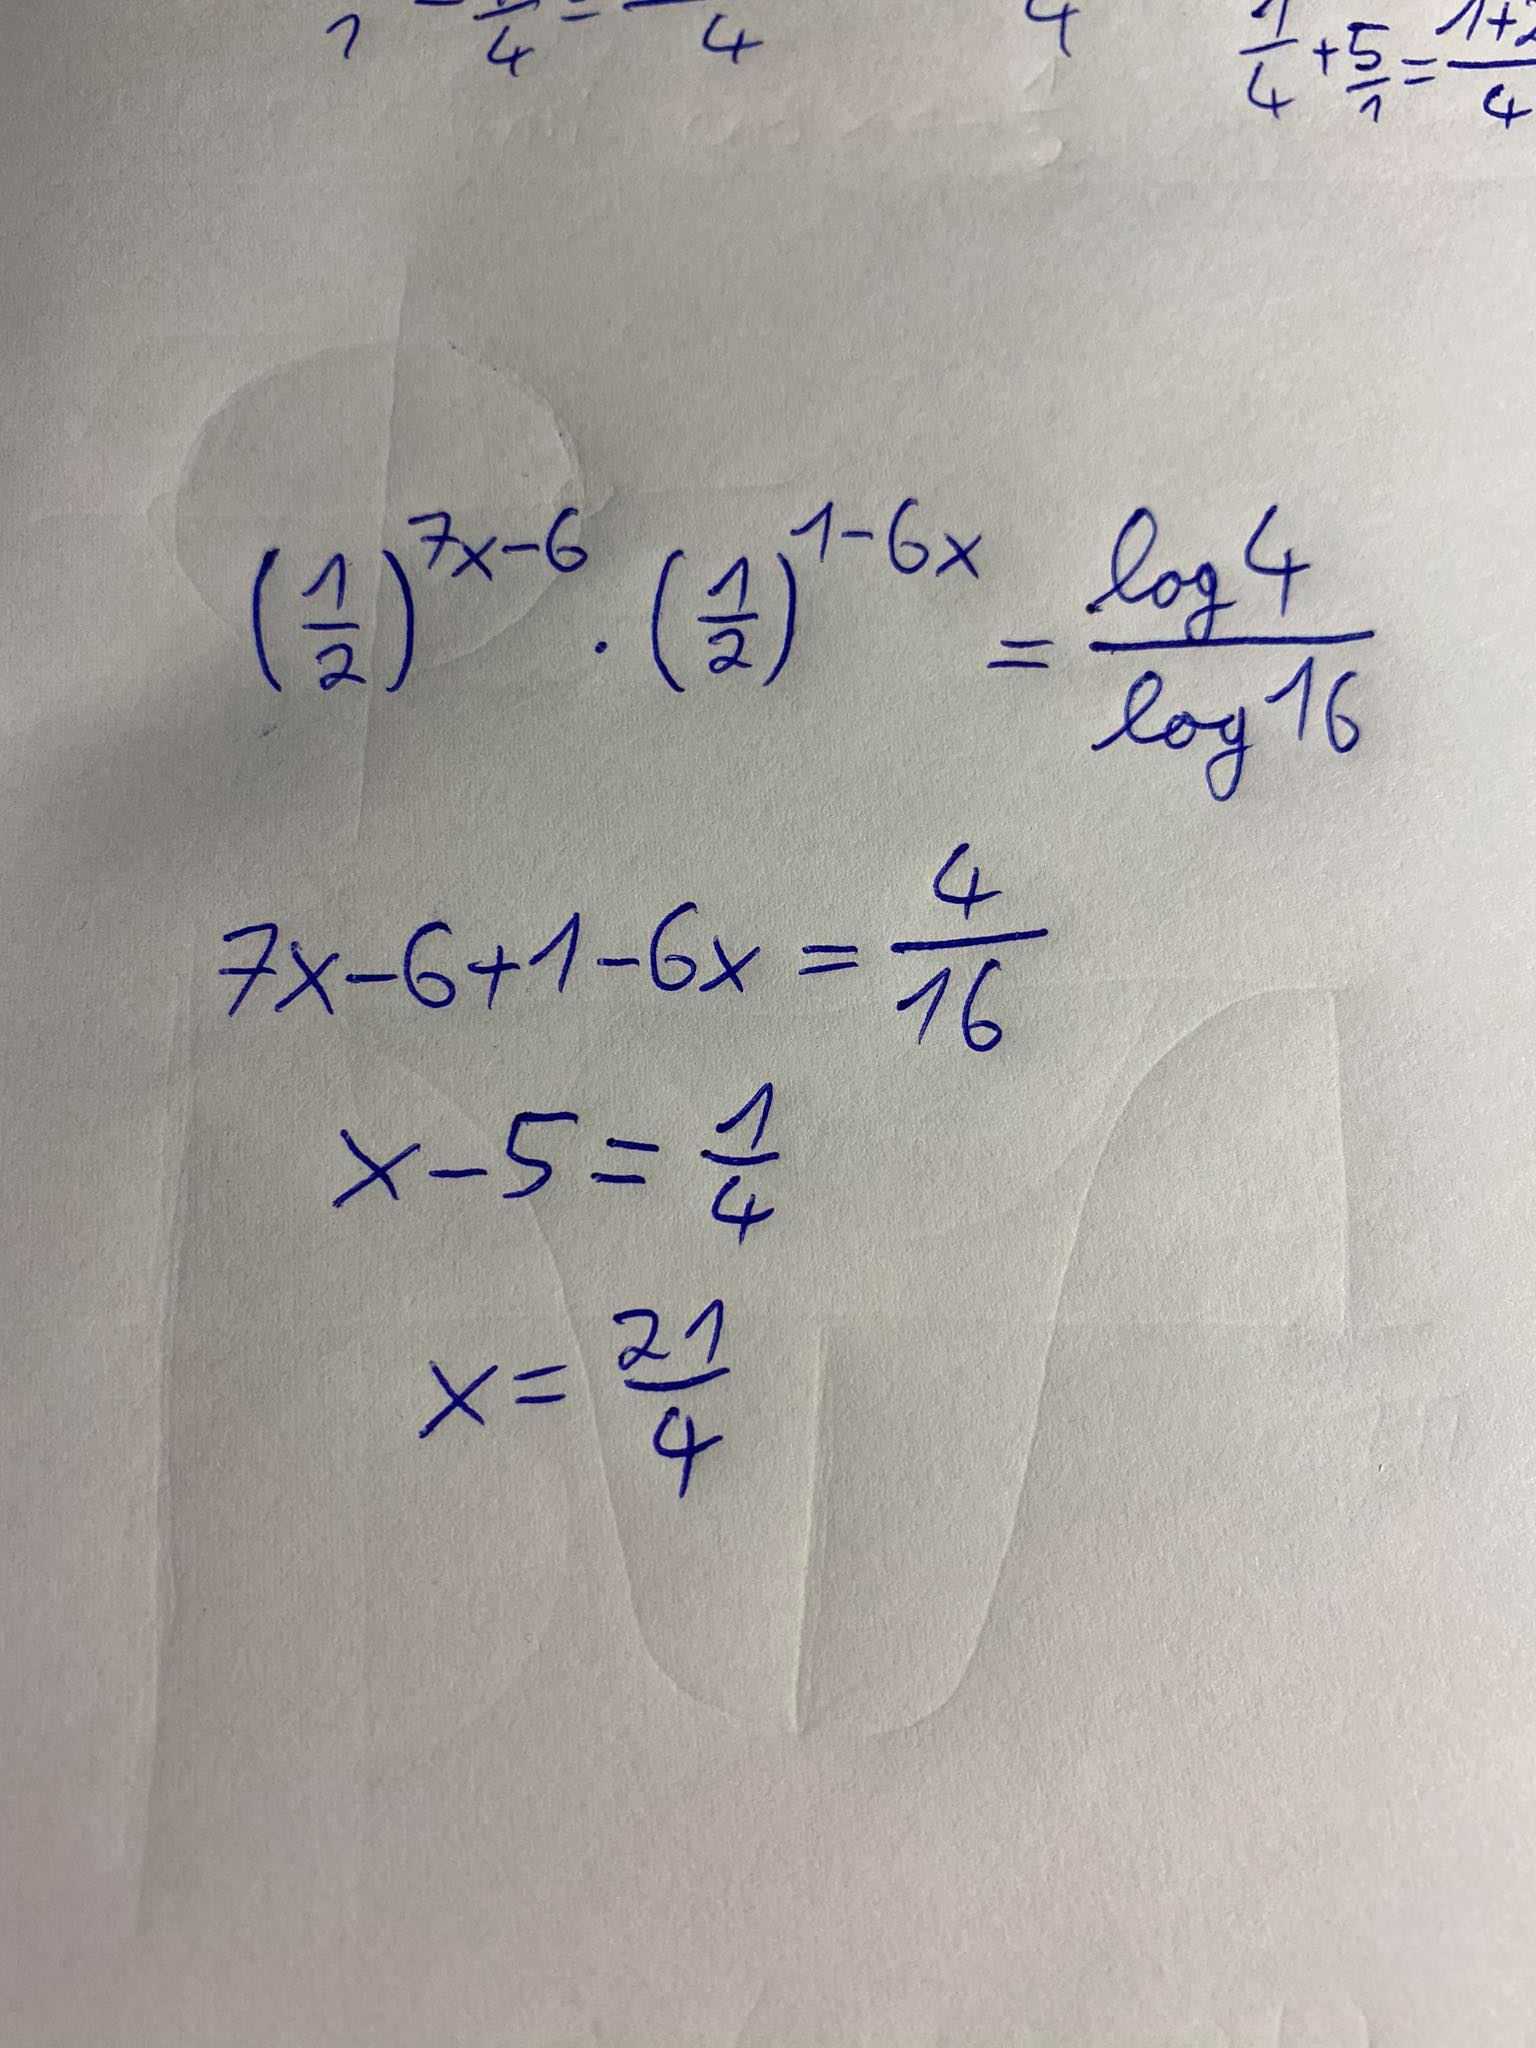 1/4 + 5/1 = 1+2/4
(1/2)^(7x-6) · (1/2)^(1-6x) = log 4 / log 16
7x-6+1-6x = 4/16
x-5 = 1/4
x = 21/4